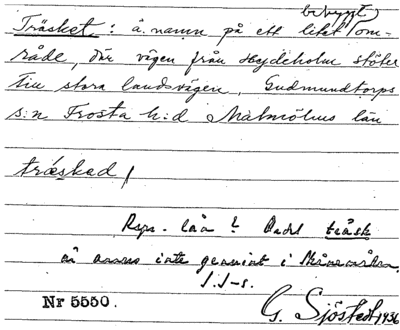 bebyggt
Träsket: ä. namn på ett litet om-
råde, där vägen från Heydeholm stöter
till stora landsvägen, Gudmundtorps
s:n Frosta h:d Malmöhus län
träskad,
Rspr. lån? Ordet träsk
är annars inte genuint i Skånemålen.
I. I-s.
Nr 5550.
G. Sjöstedt 1936